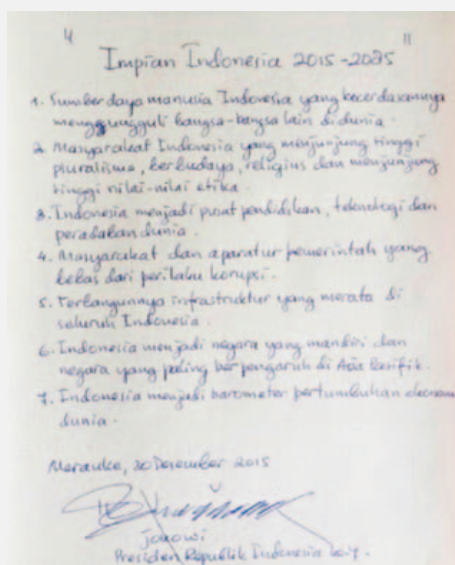 " Impian Indonesia 2015-2085 "
1. Sumber daya manusia Indonesia yang kecerdasannya
mengungguli bangsa-bangsa lain di dunia.
2. Masyarakat Indonesia yang menjunjung tinggi
pluralisme, berbudaya, religius dan menjunjung
tinggi nilai-nilai etika.
3. Indonesia menjadi pusat pendidikan, teknologi dan
peradaban dunia.
4. Masyarakat dan aparatur pemerintah yang
bebas dari perilaku korupsi.
5. Terbangunnya infrastruktur yang merata di
seluruh Indonesia.
6. Indonesia menjadi negara yang mandiri dan
negara yang paling berpengaruh di Asia Pasifik.
7. Indonesia menjadi barometer pertumbuhan ekonomi
dunia.
Merauke, 30 Desember 2015
jokowi
Presiden Republik Indonesia ke-7.